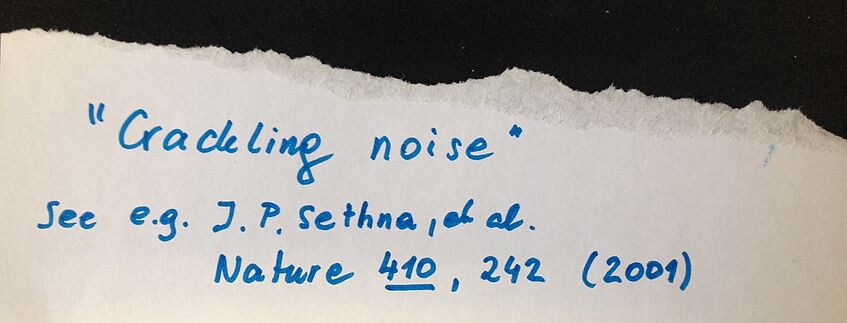 "Crackling noise"
See e.g. J. P. Sethna, et al.
Nature 410, 242 (2001)